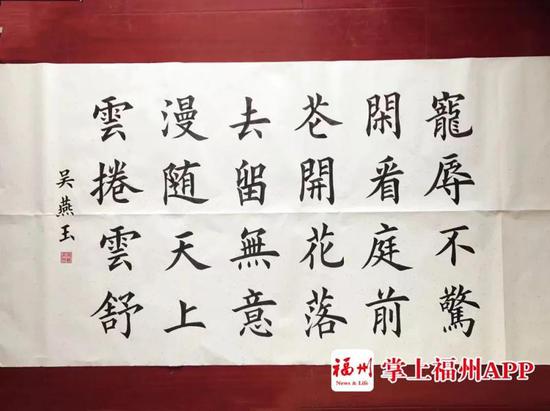 寵辱不驚
閑看庭前
芲開花落
去留無意
漫随天上
雲捲雲舒
吴燕玉
福州
News & Life
掌上福州APP